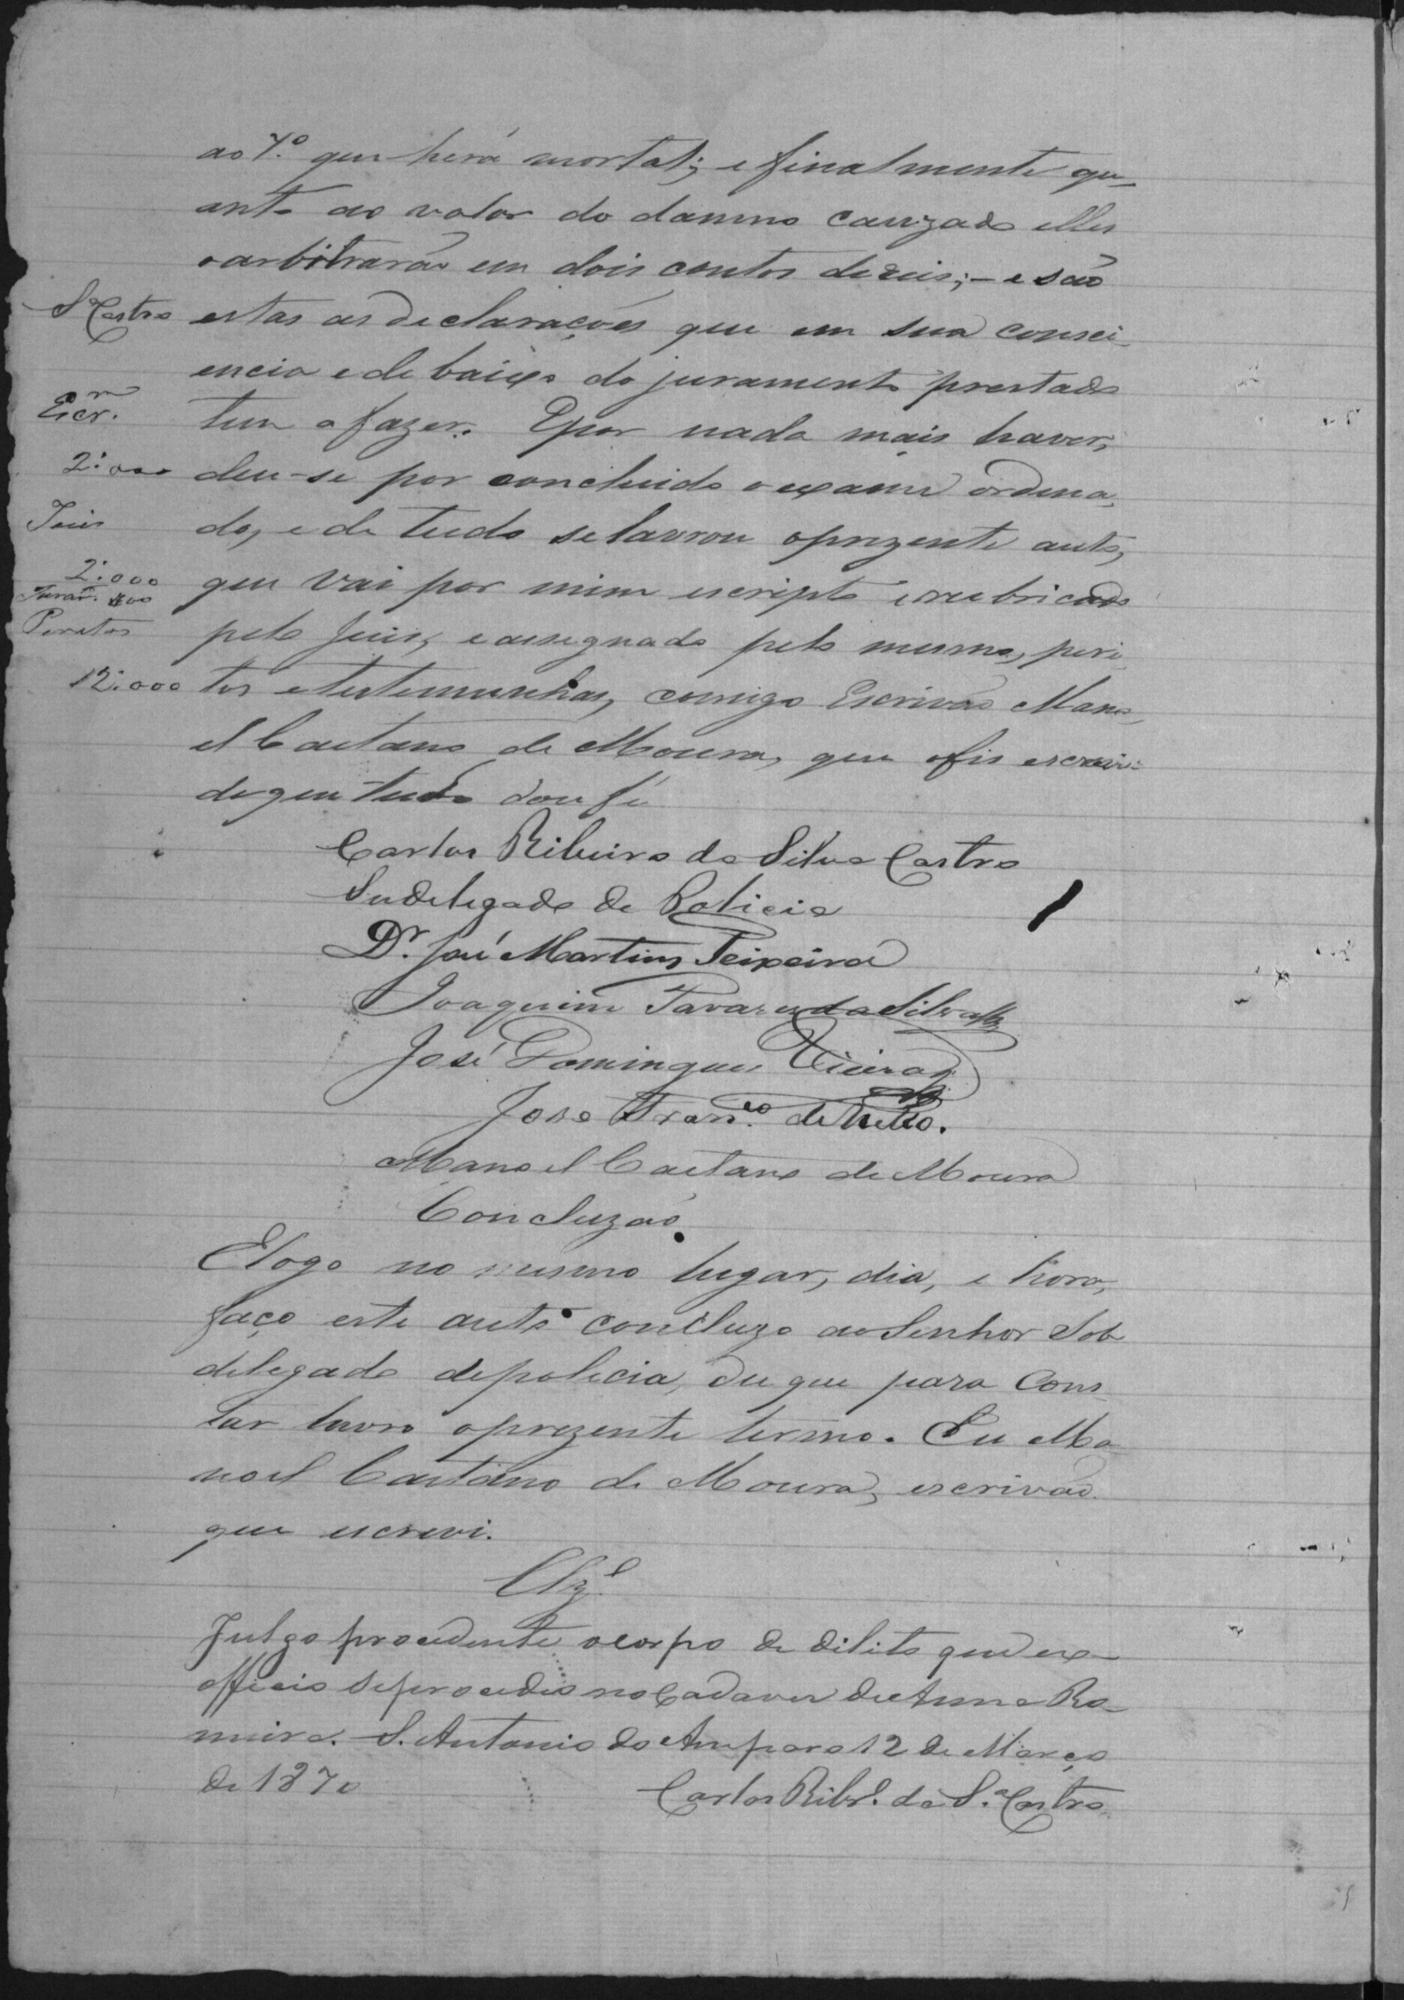 ao 7º. que herá mortal; e finalmente qu-
anto ao valor do damno cauzado elles
o arbitrarão em dois contos de reis; - e são
Sª Castro
estas as declarações que em sua consci-
encia e de baixo do juramento prestado
Escr.m
tem a fazer. E por nada mais haver,
2:000
deu-se por concluido o exame ordena-
Juis
do, e de tudo se lavrou o prezente auto,
2:000
que vai por mim escripto e rubricado
Juram. 400
Peretos
pelo Juis, e assegnado pelo mesmo, peri-
12:000
tos e testemunhas, comigo Escrivão Mano-
el Caetano de Moura, que o fis escrevi:
do que tudo dou fé
Carlos Ribeiro da Silva Castro
Sudelegado de Policia
Dr. José Martins Teixeira
Joaquim Tavares da Silva
José Domingues Vieira
Jose Fran.co de Mello.
Manoel Caetano de Moura
Concluzão.
E logo no mesmo lugar, dia, e hora,
faço este auto concluzo ao Senhor Sob
delegado de policia, du que para Cons-
tar lavro o prezente termo. Eu Ma-
noel Caetano de Moura, escrivão
que escrevi.
Clzº
Julgo procedente o corpo de dilito que ex-
officio se procedeo no Cadaver de Anna Ro-
meira. S. Antonio do Amparo 12 de Março
de 1870
Carlos Ribrº. da Sª Castro